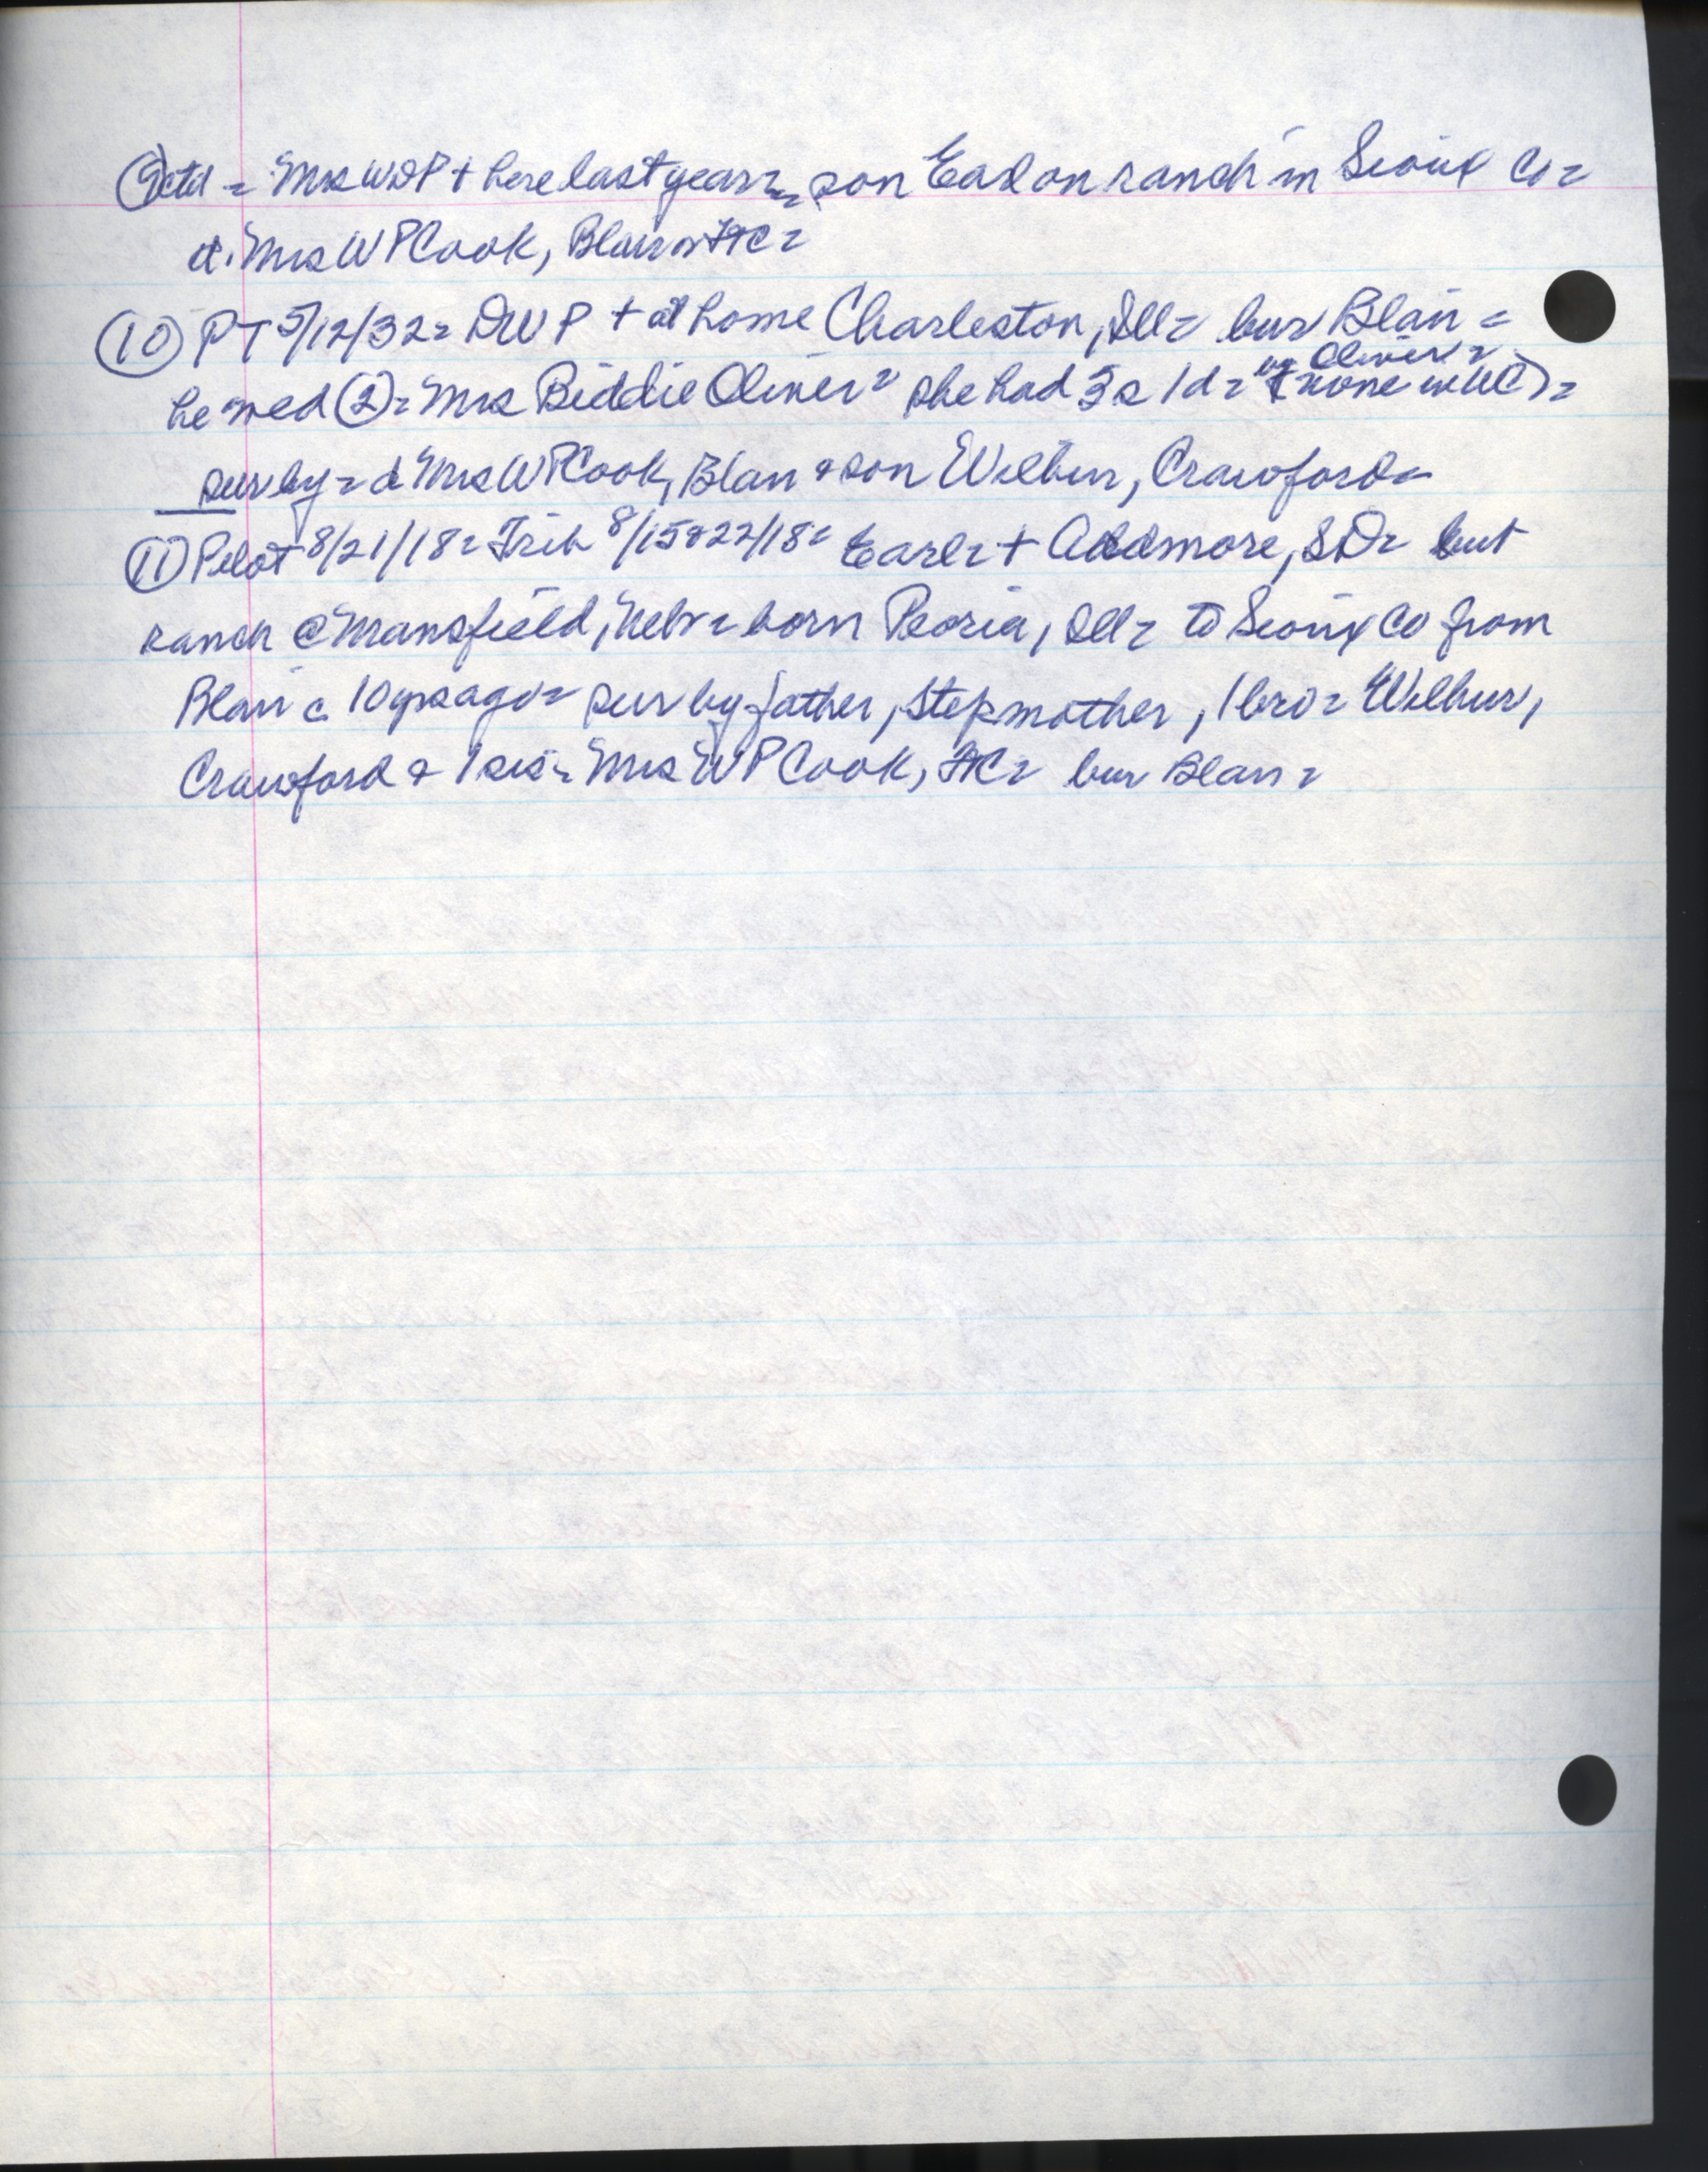 ⑨ctd = Mrs WDP + here last year = son Earl on ranch in Sioux Co =
d. Mrs W P Cook, Blair or FtC =
⑩ PT 5/12/32 = DWP + at home Charleston, Ill = bur Blair =
he wed ② = Mrs Biddie Oliver = she had 3 s 1 d = Oliver = (none in WC) =
sur by = d Mrs W P Cook, Blair & son Wilbur, Crawford =
⑪ Pilot 8/21/18 = Trib 8/15 & 22/18 = Earl = + Ardmore, SD = but
ranch @ Mansfield, Nebr = born Peoria, Ill = to Sioux Co from
Blair c 10 yrs ago = sur by father, stepmother, 1 bro = Wilbur,
Crawford & 1 sis = Mrs W P Cook, FtC = bur Blair =